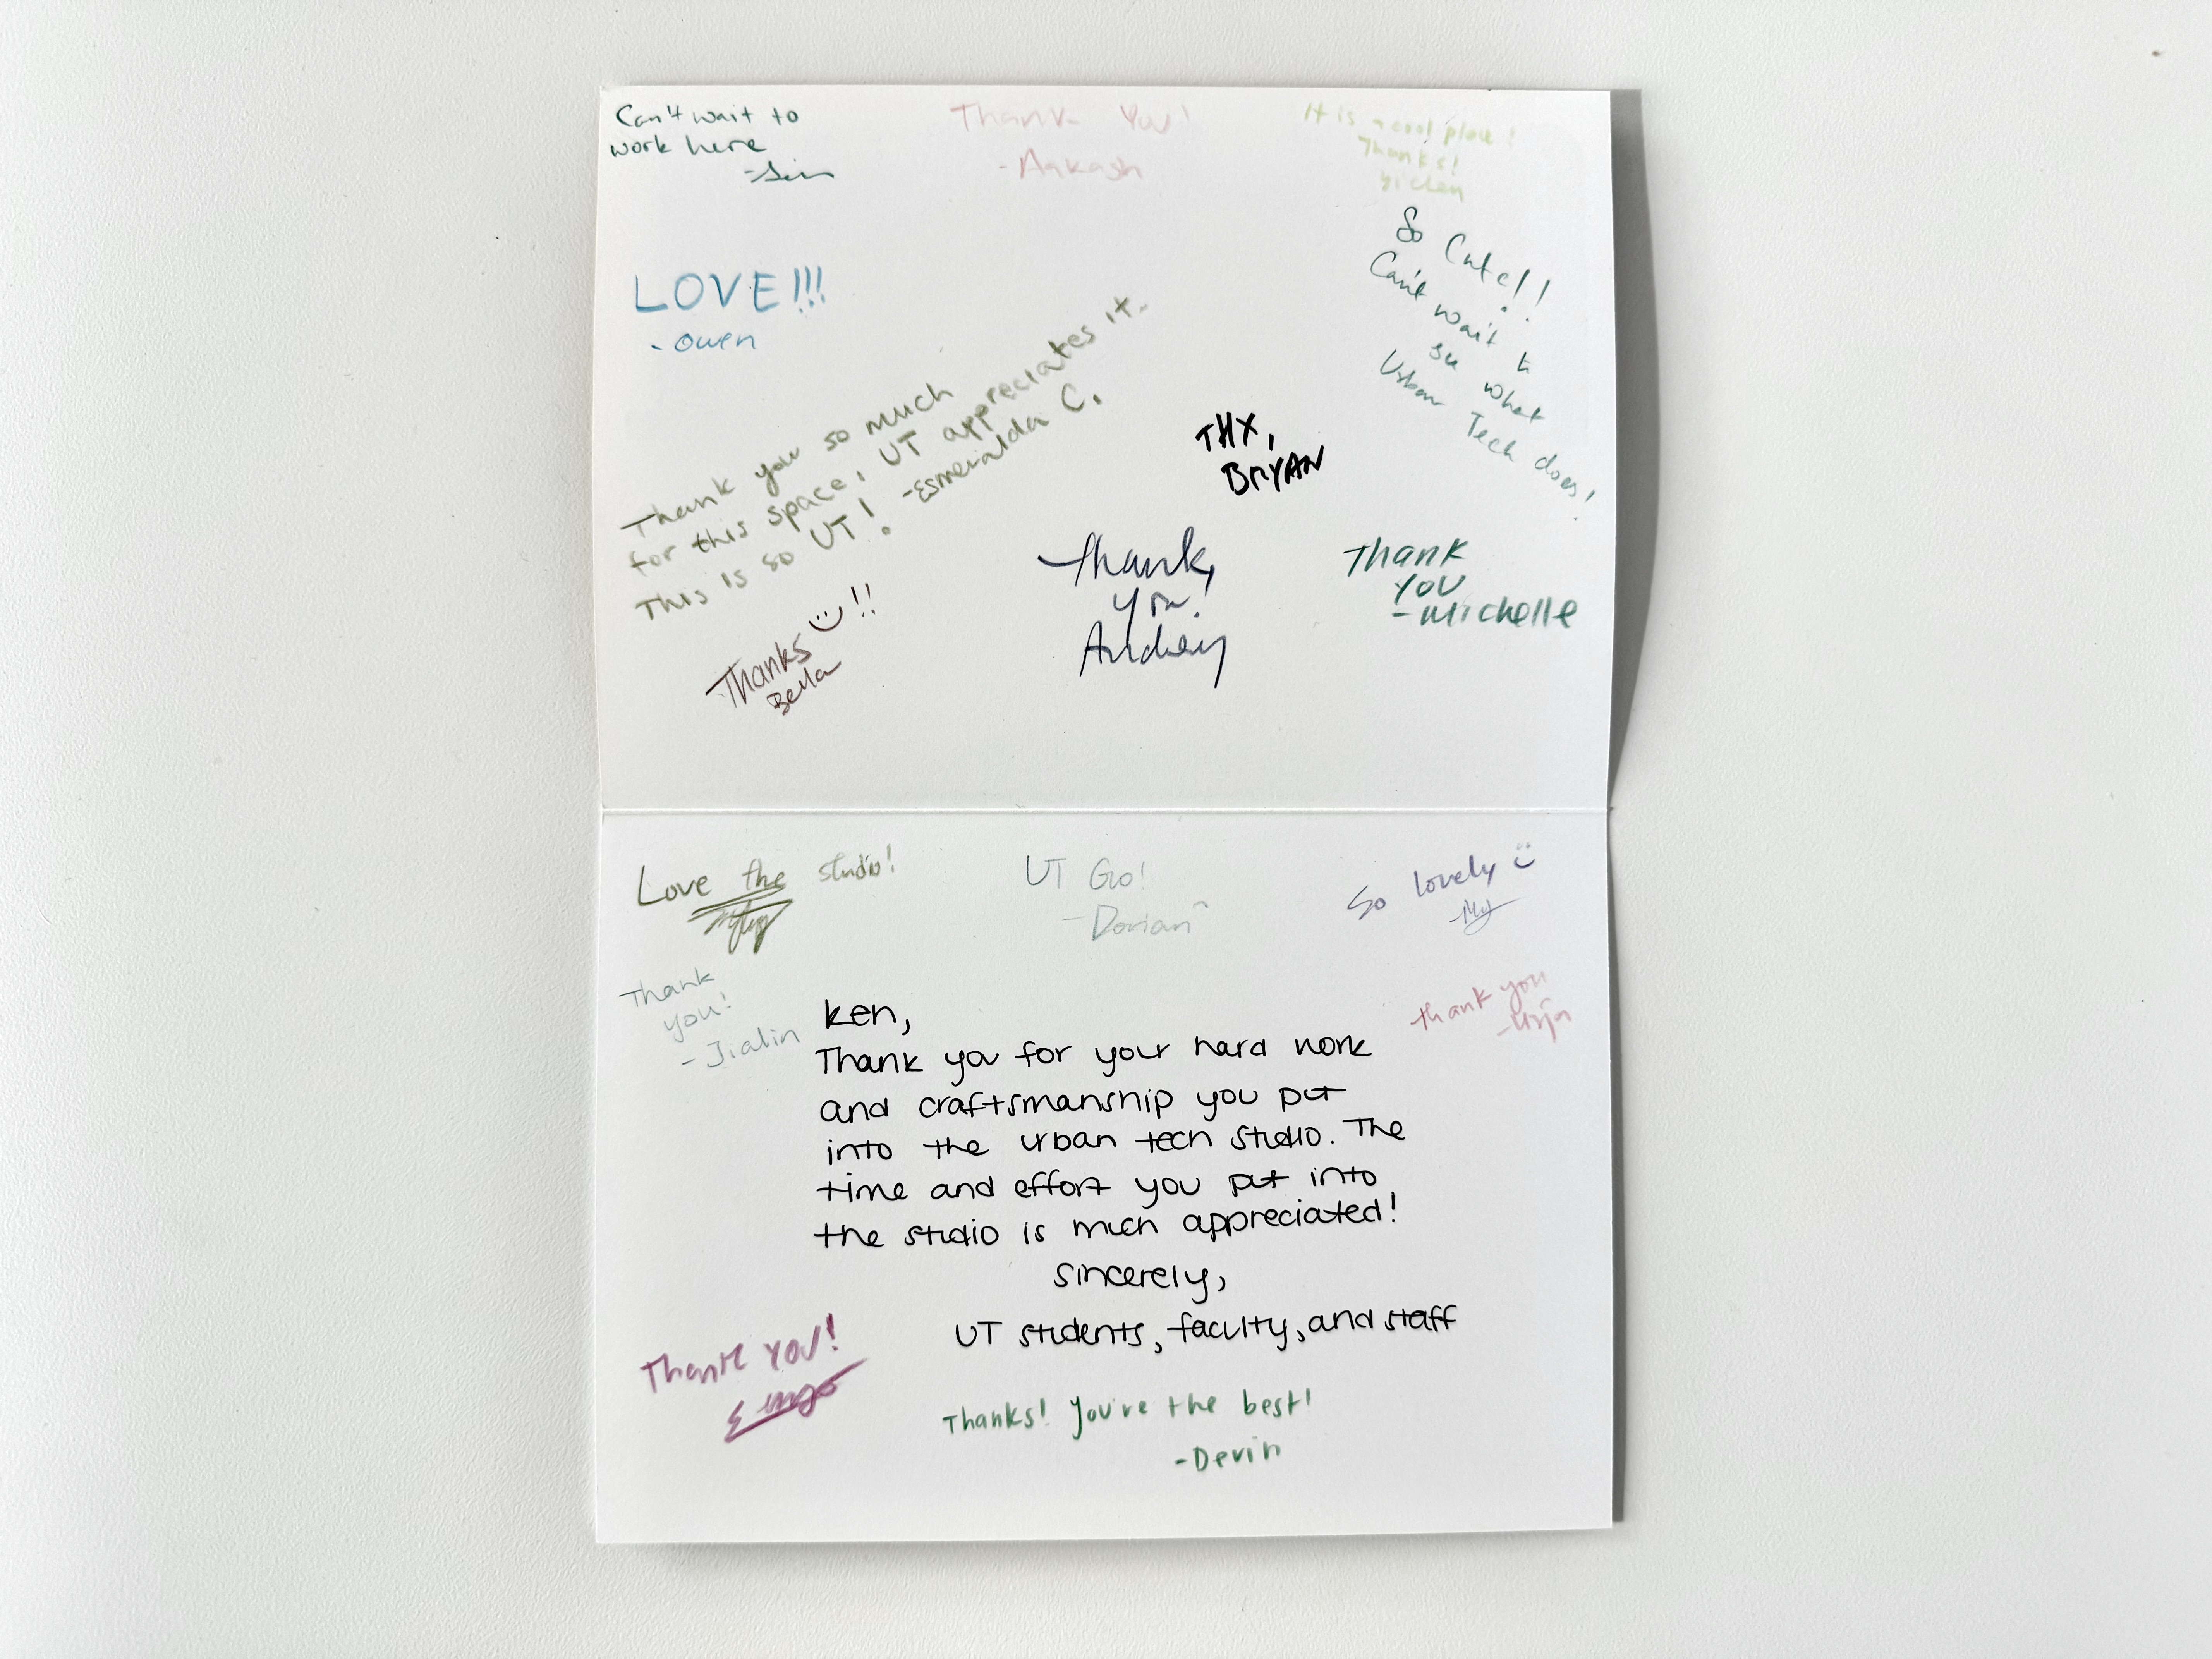 Can't wait to
work here
Thank You!
- Aakash
It is a cool place!
Thanks!
Yichen
LOVE!!!
- Owen
So Cute!!
Can't wait to
see what
Urban Tech does!
Thank you so much
for this space, UT appreciates it.
This is so UT! -Esmeralda C.
THX,
BRYAN
Thanks :) !!
Bella
Thank
you!
Audrey
Thank
you
- Michelle
Love the studio!
UT Go!
- Dorian
So lovely :)
Thank
you!
- Jialin
thank you
- Urja
Ken,
Thank you for your hard work
and craftsmanship you put
into the urban tech studio. The
time and effort you put into
the studio is much appreciated!
sincerely,
UT students, faculty, and staff
Thank you!
Thanks! You're the best!
- Devin